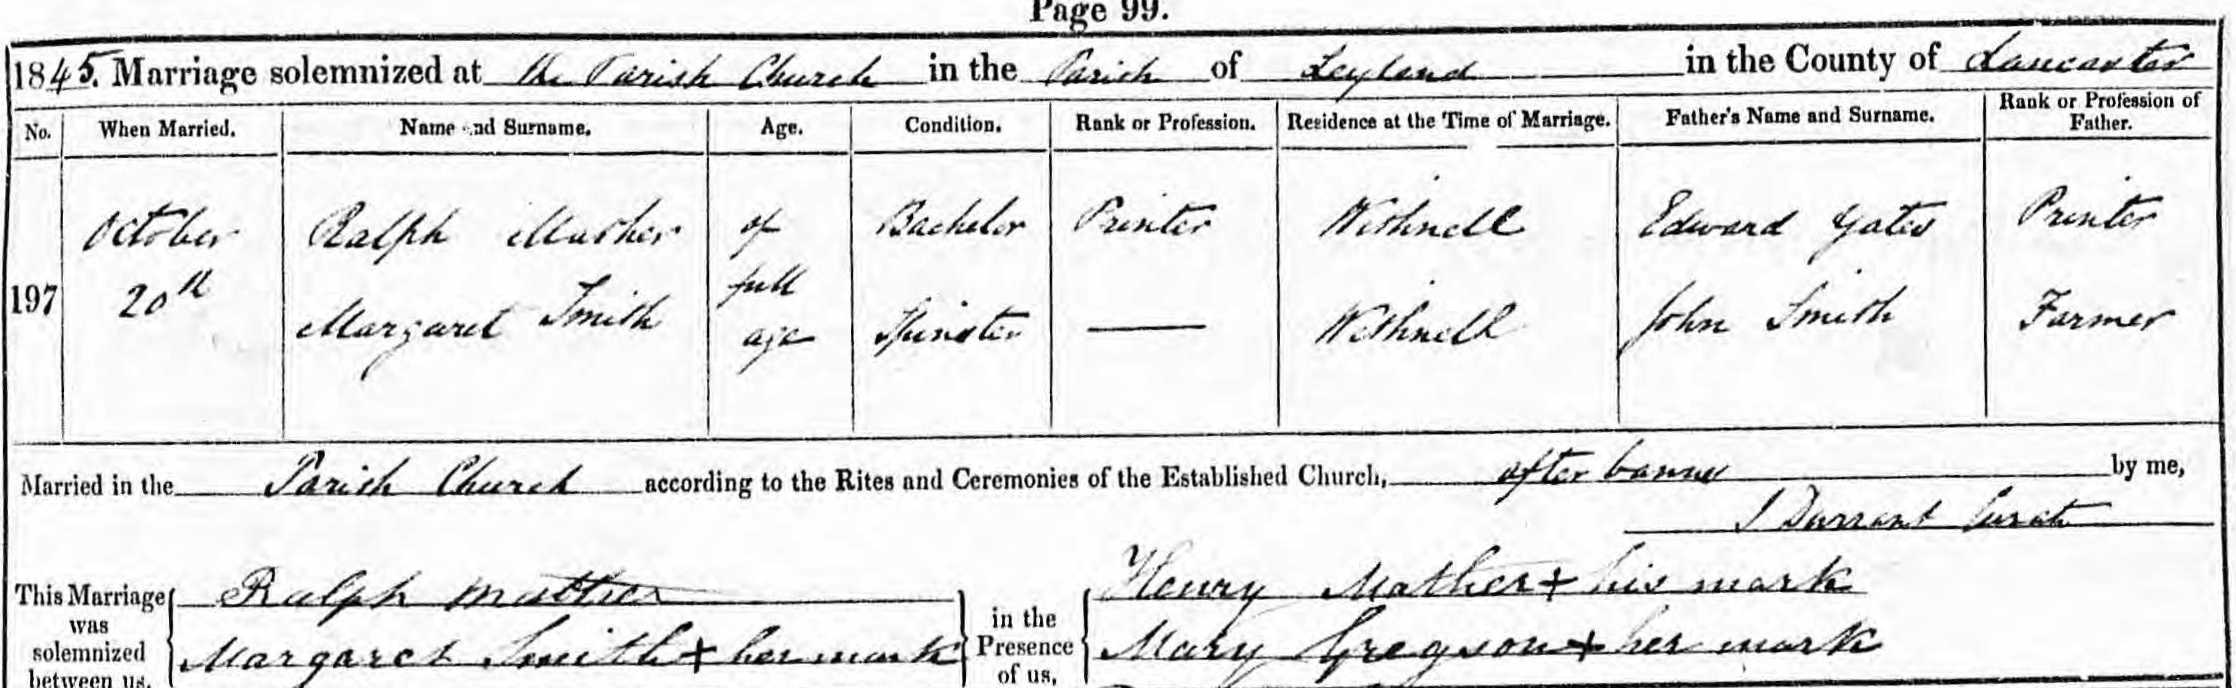 Page 99.
1845. Marriage solemnized at the Parish Church in the Parish of Leyland in the County of Lancaster
No. When Married. Name and Surname. Age. Condition. Rank or Profession. Residence at the Time of Marriage. Father's Name and Surname. Rank or Profession of Father.
October Ralph Mather of Bachelor Printer Withnell Edward Yates Printer
197 20th full
Margaret Smith age Spinster — Withnell John Smith Farmer
Married in the Parish Church according to the Rites and Ceremonies of the Established Church, after banns by me,
J Durrant Curate
This Marriage was solemnized between us, Ralph Mather in the Presence of us, Henry Mather + his mark
Margaret Smith + her mark Mary Gregson + her mark